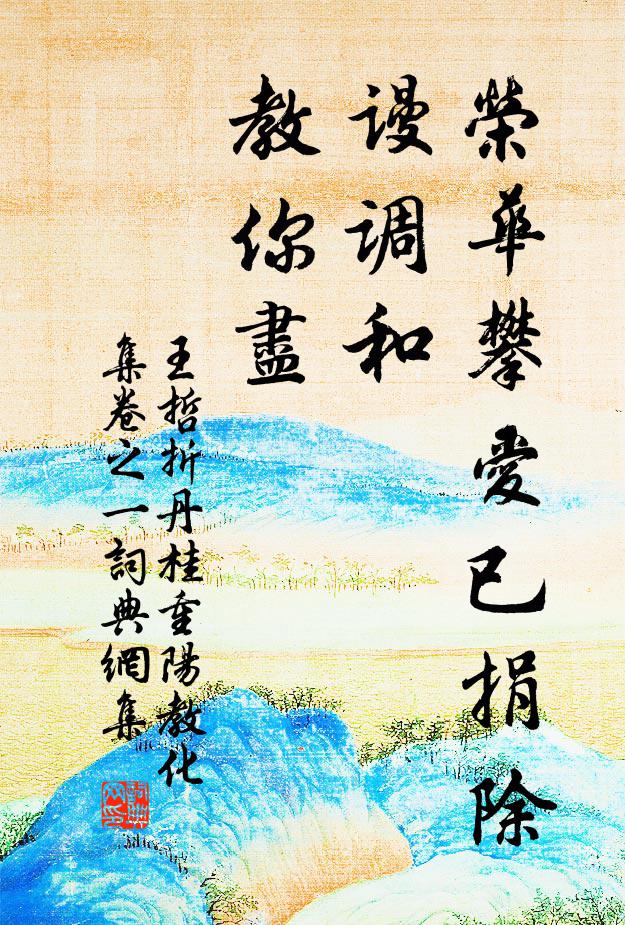 榮華攀愛已捐除
谩调和
教你盡
王哲折丹桂重陽教化
集卷之一詞典網集